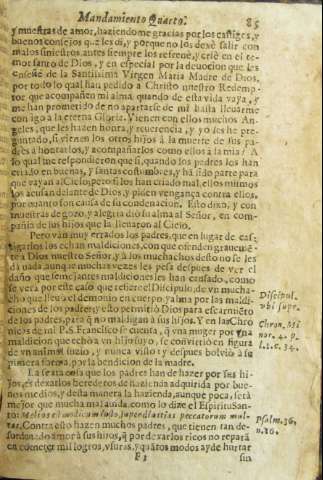 Mandamiento Quarto. 85
y muestras de amor, haziendome gracias por los castigos, y
buenos consejos que les di, y porque no los dexè salir con
malos siniestros, antes siempre los refrenè, y criè en el te-
mor santo de Dios, y en especial por la deuocion que les
enseñè de la Santissima Virgen Maria Madre de Dios,
por todo lo qual han pedido a Christo nuestro Redemp-
tor que acompañen mi alma quando de esta vida vaya, y
me han prometido de no apartarse de mi hasta lleuarme
consigo a la eterna Gloria. Vienen con ellos muchos An-
geles, que les hazen honra, y reuerencia, y yo les he pre-
guntado, si vienen los otros hijos à la muerte de sus pa-
dres à honrarlos, y acompañarlos como ellos a la mia? A
lo qual me respondieron que si, quando los padres los han
criado en buenas, y santas costumbres, y ha sido parte para
que vayan al Cielo; pero si los han criado mal, ellos mismos
los acusan delante de Dios, y piden vengança contra ellos,
por quanto son causa de su condenacion. Esto dixo, y con
muestras de gozo, y alegria diò su alma al Señor, en com-
pañia de sus hijos que la lleuaron al Cielo.
Pero van muy errados los padres, que en lugar de cas-
tigarlos los echan maldiciones, con que ofenden grauemẽ-
te à Dios nuestro Señor, y à los muchachos desto no se les
dà nada, aunque muchas vezes les pesa despues de ver el
daño que semejantes maldiciones les han causado, como
se verà por este caso que refiere el Discipulo, de vn mucha-
cho que lleuò el demonio en cuerpo, y alma por las maldi-
ciones de los padres, y esto permitiò Dios para escarmiẽto
de los padres, para q̃ no maldigan à sus hijos. Y en las Chro
nicas de mi P. S. Francisco se cuenta, q̃ vna muger por vna
maldicion que echò a vn hijo suyo, se convirtiò en figura
de vn animal suzio, y nunca visto, y despues bolviò à su
primera forma, por la bendicion de la madre.
Discipul.
vbi supr.
Chron. Mi
nor. 4. p.
l. 1. c. 34.
La sexta cosa que los padres han de hazer por sus hi-
jos, es dexarlos herederos de hazienda adquirida por bue-
nos medios, y desta manera la hazienda, aunque poca, serà
mejor que mucha mal auida, como lo dize el Espiritu San-
to: Melius est modicum iusto, super diuitias peccatorum mul-
tas. Contra esto hazen muchos padres, que tienen tan de-
sordenado amor à sus hijos, q̃ por dexarlos ricos no reparã
en cometer mil logros, vsuras, y quãtos modos ay de hurtar
Psalm. 36.
n. 16.
sin